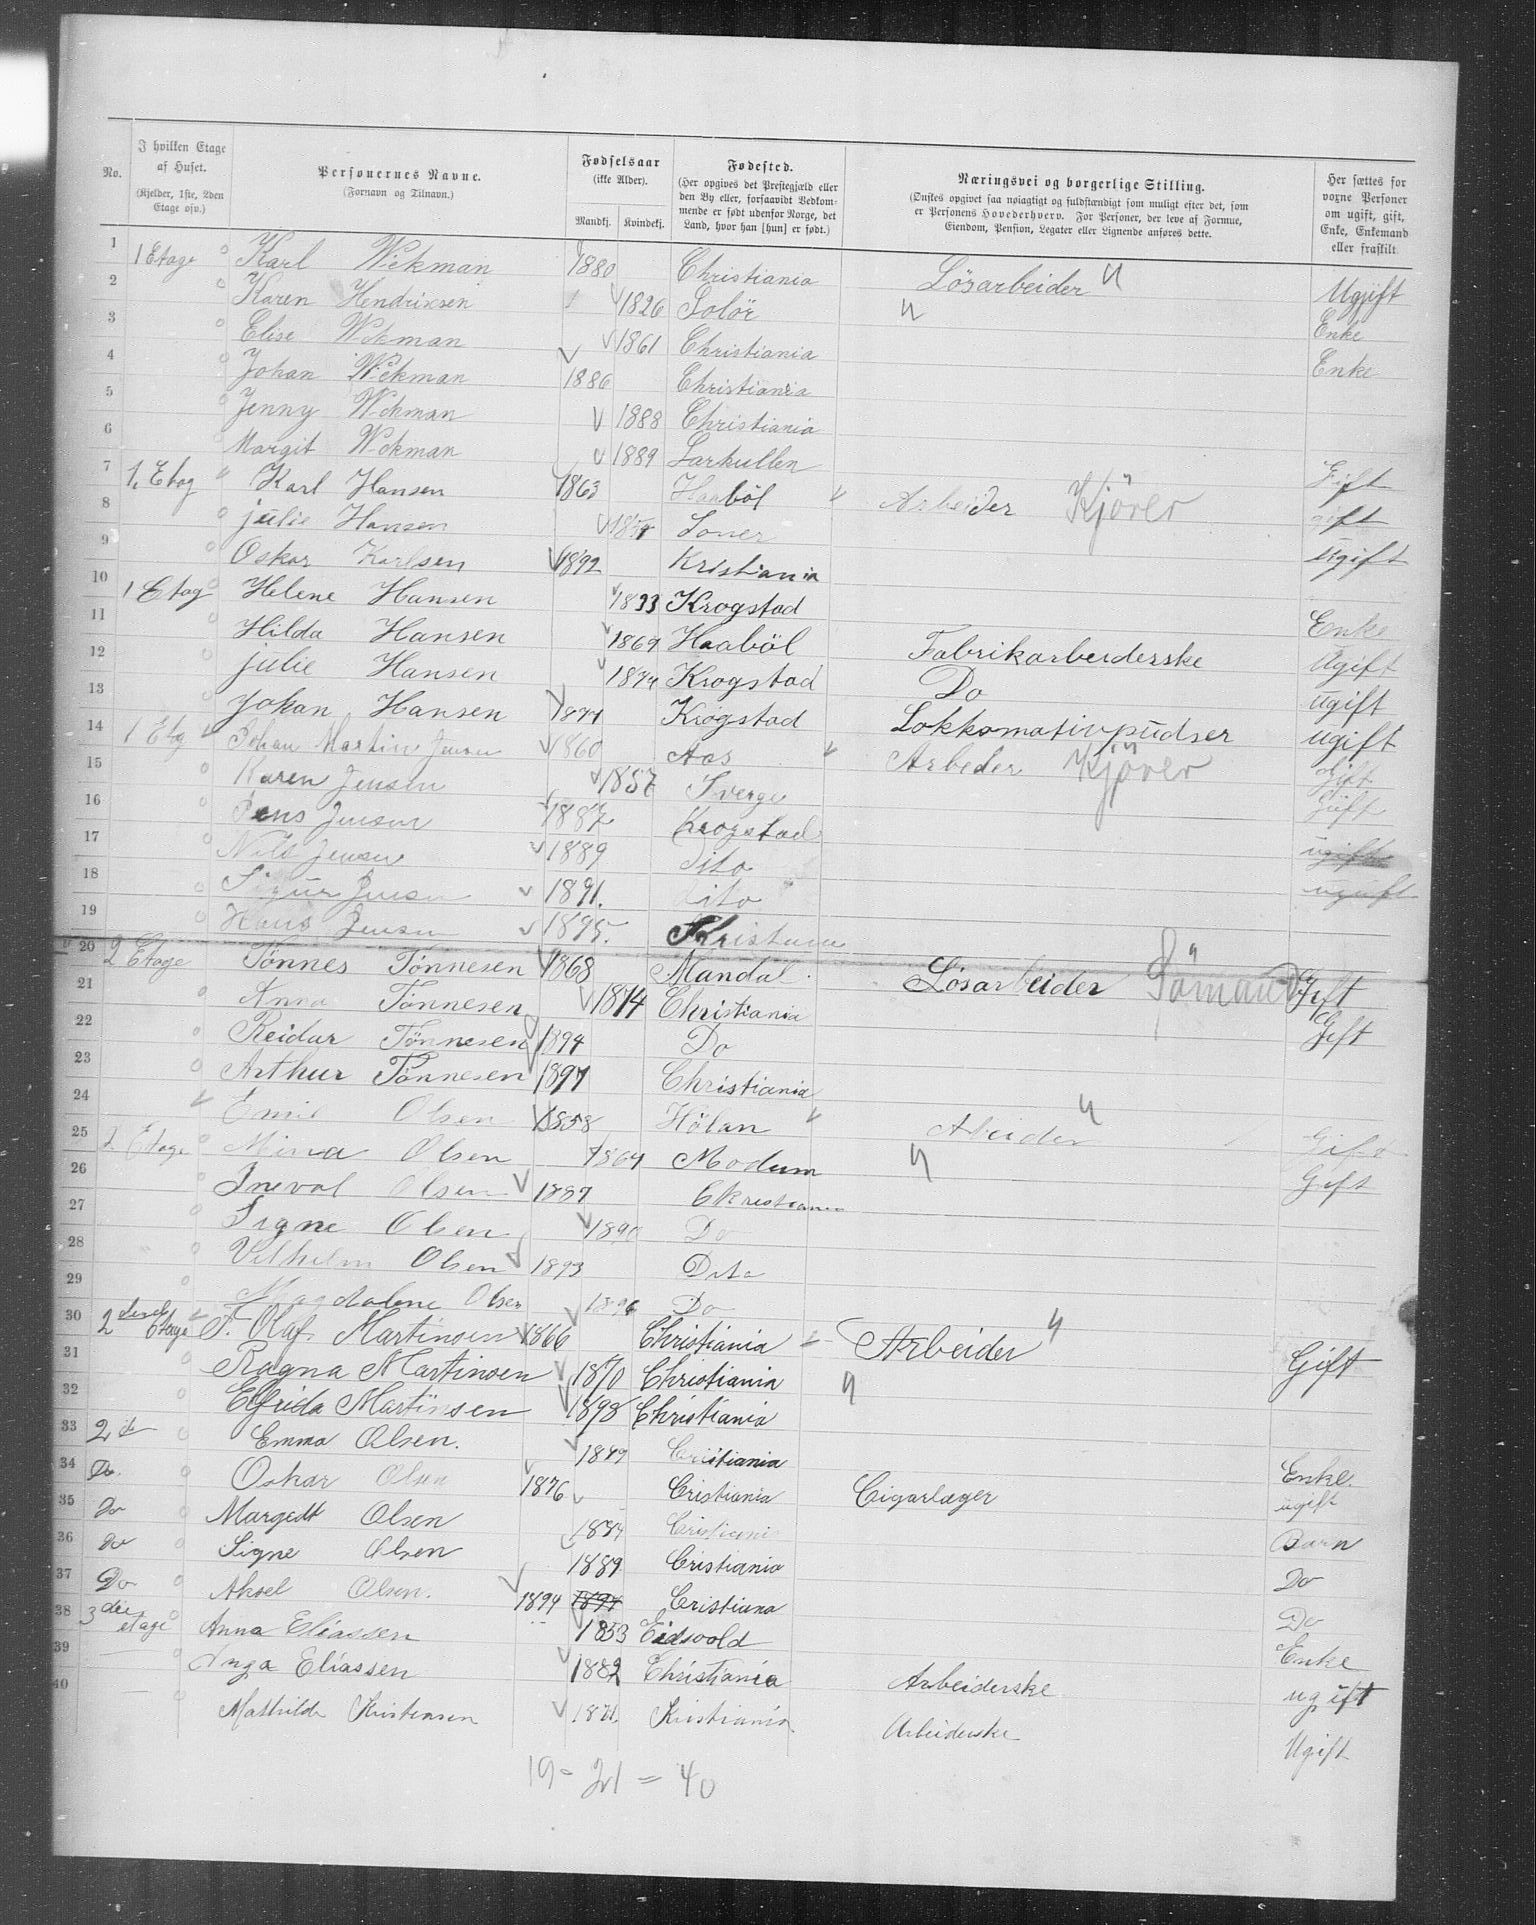 No.
I hvilken Etage af Huset. (Kjelder, 1ste, 2den Etage osv.)
Personernes Navne. (Fornavn og Tilnavn.)
Fødselsaar (ikke Alder). Mandkj. Kvindekj.
Fødested. (Her opgives det Prestegjæld eller den By eller, forsaavidt Vedkommende er født udenfor Norge, det Land, hvor han [hun] er født.)
Næringsvei og borgerlige Stilling. (Ønskes opgivet saa nøiagtigt og fuldstændigt som muligt efter det, som er Personens Hovederhverv. For Personer, der leve af Formue, Eiendom, Pension, Legater eller Lignende anføres dette.
Her sættes for voxne Personer om ugift, gift, Enke, Enkemand eller fraskilt.
1 1 Etage Karl Wekman 1880 Christiania Lösarbeider Ugift
2 Karen Hendriksen 1826 Solör Enke
3 Elise Wekman 1861 Christiania Enke
4 Johan Wekman 1886 Christiania
5 Jenny Wekman 1888 Christiania
6 Margit Wekman 1889 Larkullen
7 1. Etag Karl Hansen 1863 Haaböl Arbeider Kjörer Gift
8 julie Hansen Soner gift
9 Oskar Karlsen 1892 Kristiania ugift
10 1 Etag Helene Hansen 1833 Krogstad Enke
11 Hilda Hansen 1869 Haaböl Fabrikarbeiderske Ugift
12 julie Hansen 1874 Krogstad Do ugift
13 Johan Hansen 1877 Krogstad Lokkomativpudser ugift
14 1 Etg Johan Martin Jensen 1860 Aas Arbeder Kjörer Gift
15 Karen Jensen 1857 Sverge Gift
16 Jens Jensen 1887 Krogstad
17 Nils Jensen 1889 Dito ugift
18 Sigur Jensen 1891. Dito ugift
19 Hans Jensen 1895. Kristiania
20 2 Etage Tönnes Tönnesen 1868 Mandal. Lösarbeider Sömand Gift
21 Anna Tönnesen 1874 Christiania Gift
22 Reidar Tönnesen 1894 Do
23 Arthur Tönnesen 1897 Christiania
24 Emil Olsen 1858 Hölan Abeider Gift
25 2 Etage Mina Olsen 1864 Modum Gift
26 Olsen 1887 Christiania
27 Signe Olsen 1890 Do
28 Vilhelm Olsen 1893 Dito
29 Magdalene Olsen 1896 Do
30 2 Etage T. Olaf Martinsen 1866 Christiania Arbeider Gift
31 Ragna Martinsen 1870 Christiania
32 Elfrida Martinsen 1898 Christiania
33 2 Emma Olsen. 1849 Cristiania Enke.
34 Do. Oskar Olsen 1876 Cristiania Cigarlager ugift
35 Do Margedt Olsen 1884 Cristiania Barn
36 Do Signe Olsen 1889 Cristiania Do
37 Do Aksel Olsen. 1894 1894 Cristiana Do
38 3die etage Anna Eliassen 1853 Eidsvold Enke
39 Inga Eliassen 1882 Christiania Arbeiderske ugift
40 Mathilde Kristensen 1871 Kristiania. Arbeiderske Ugift
19 - 21 = 40